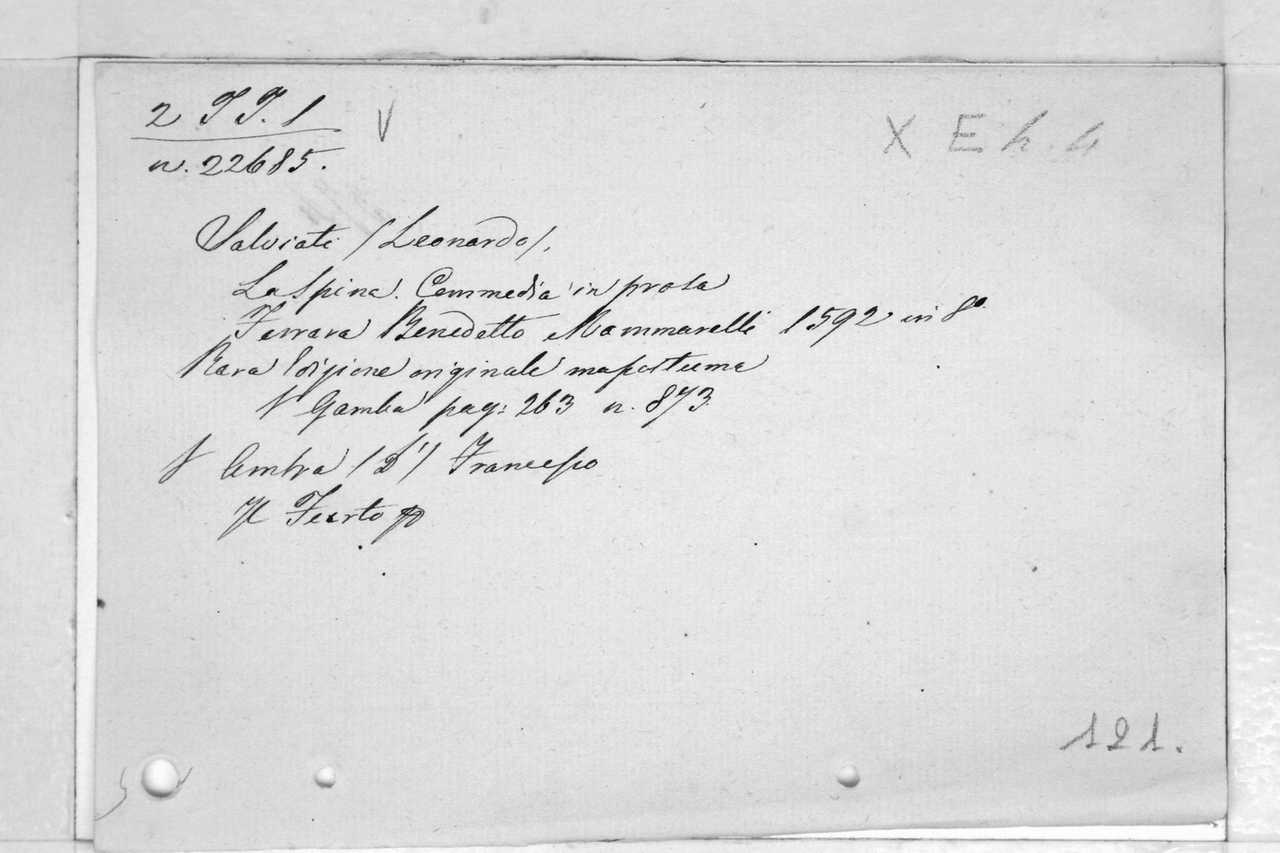 2 T T. 1 V
X E h. 4
n. 22685.
Salviati (Leonardo).
La Spina. Commedia in prosa
Ferrara Benedetto Mammarelli 1592 in 8º
Rara Edizione originale ma postuma
V Gamba pag: 263 n. 873
V Ambra (D') Francesco
Il Furto
121.